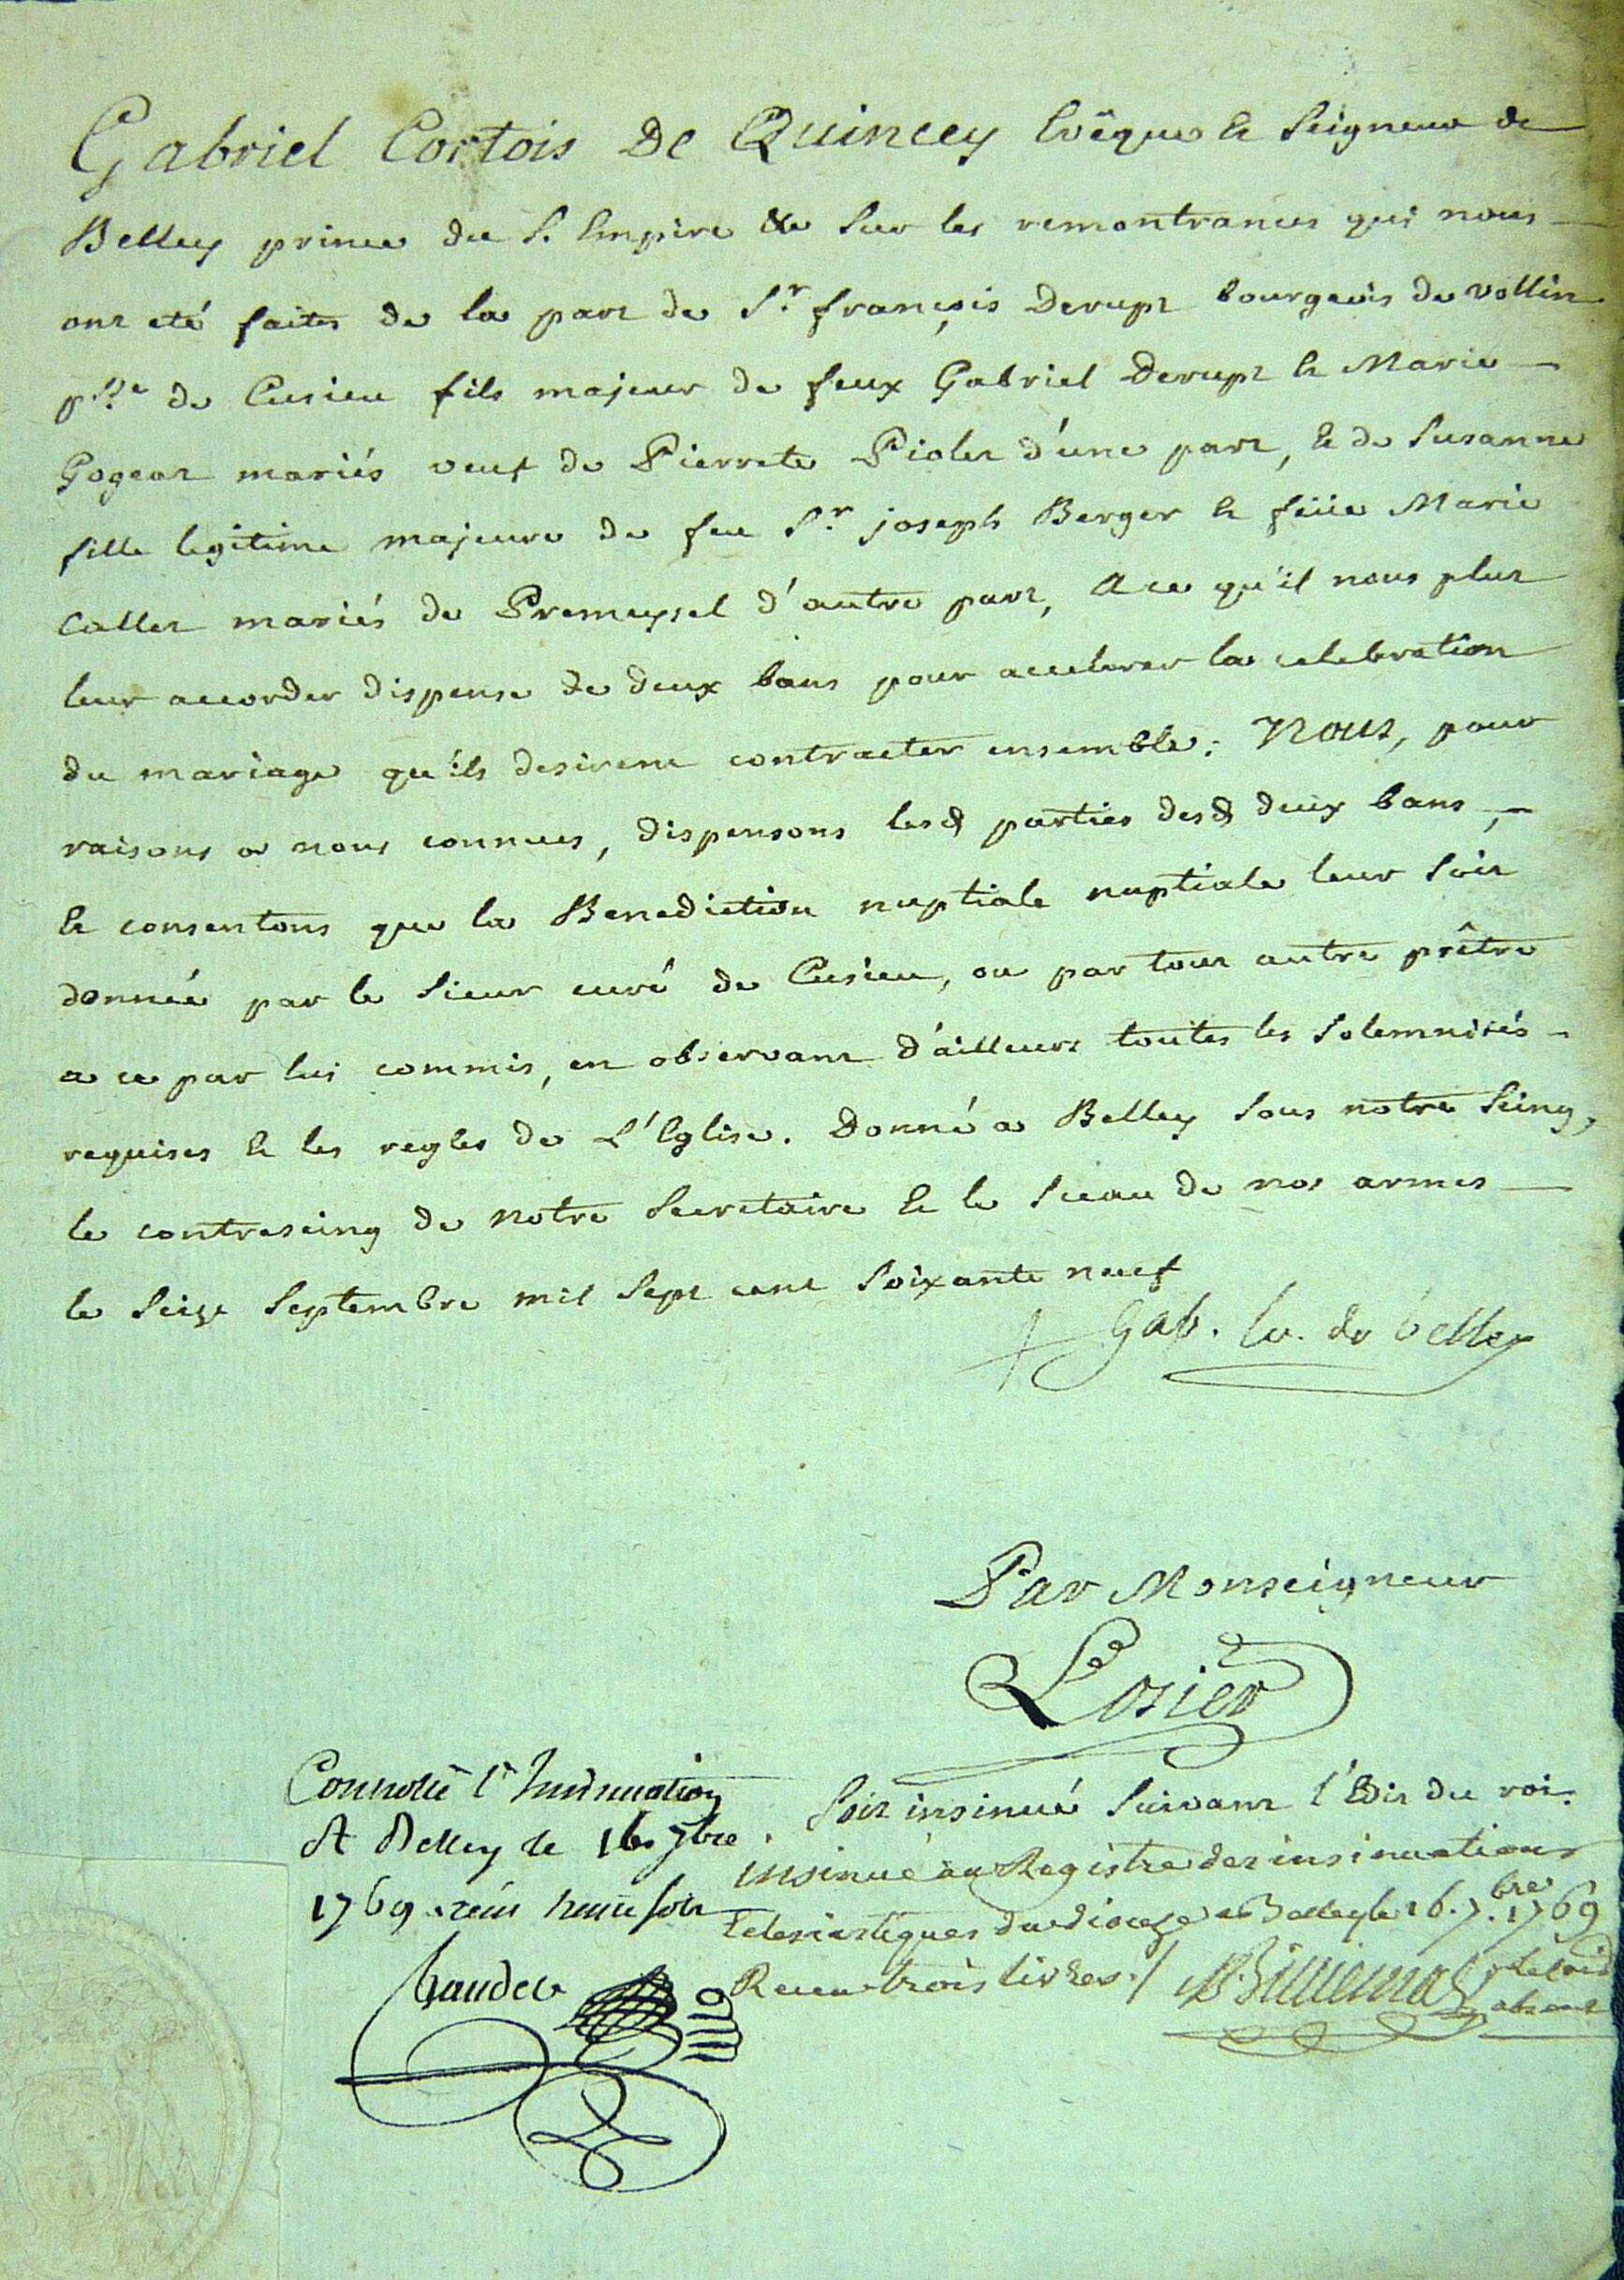 Gabriel Cortois De Quincey Evêque et Seigneur de
Belley prince du S. Empire &c Sur les remontrances qui nous
ont eté faites de la part de Sr. françois Derupt bourgeois de vollin
psse de Cusieu fils majeur de feux Gabriel Derupt et Marie
Gogeat mariés veuf de Pierrete Piolet d'une part, et de Susanne
fille legitime majeure de feu Sr. joseph Berger et feüe Marie
Callet mariés de Premeyzel d'autre part, a ce qu'il nous plut
leur accorder dispense de deux bans pour accelerer la celebration
du mariage qu'ils desirent contracter ensemble: Nous, pour
raisons a nous connues, dispensons lesd parties desd deux bans,
et consentons que la Benediction nuptiale nuptiale leur soit
donnée par le Sieur curé de Cusieu, ou par tout autre prêtre
a ce par lui commis, en observant d'ailleurs toutes les Solemnités
requises et les regles de L'Eglise. Donné a Belley sous notre Seing,
le contreseing de notre Secretaire et le Sceau de nos armes
le Seize Septembre mil Sept cent Soixante neuf
+ Gab. Ev. de belley
Par Monseigneur
Losier
Controllé l'insinuation
A Belley le 16 7bre
1769. reçu
Soit insinué Suivant l'Edit du roi.
insinué au Registre des insinuations
Eclesiastiques du dioceze a Belley le 16. 7.bre 1769
Receu trois livres./.
absent